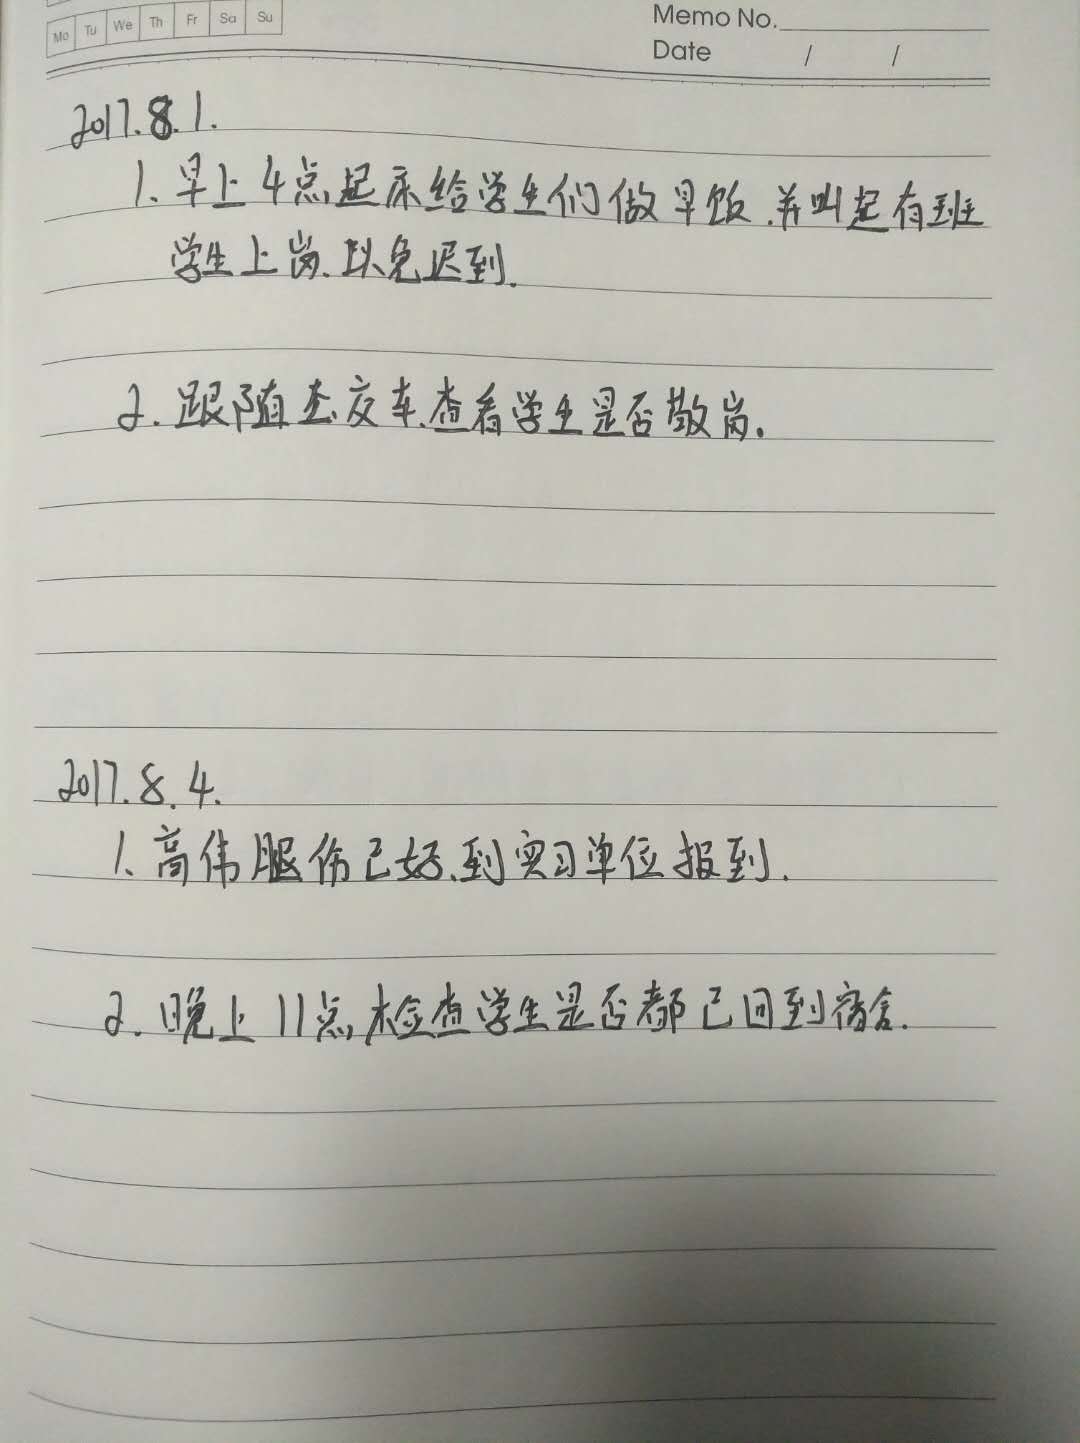 Mo Tu We Th Fr Sa Su
Memo No.
Date / /
2017.8.1.
1.早上4点起床给学生们做早饭.并叫起有班
学生上岗.以免迟到.
2.跟随公交车.查看学生是否敬岗.
2017.8.4.
1.高伟眼伤已好.到实习单位报到.
2.晚上11点,检查学生是否都已回到宿舍.